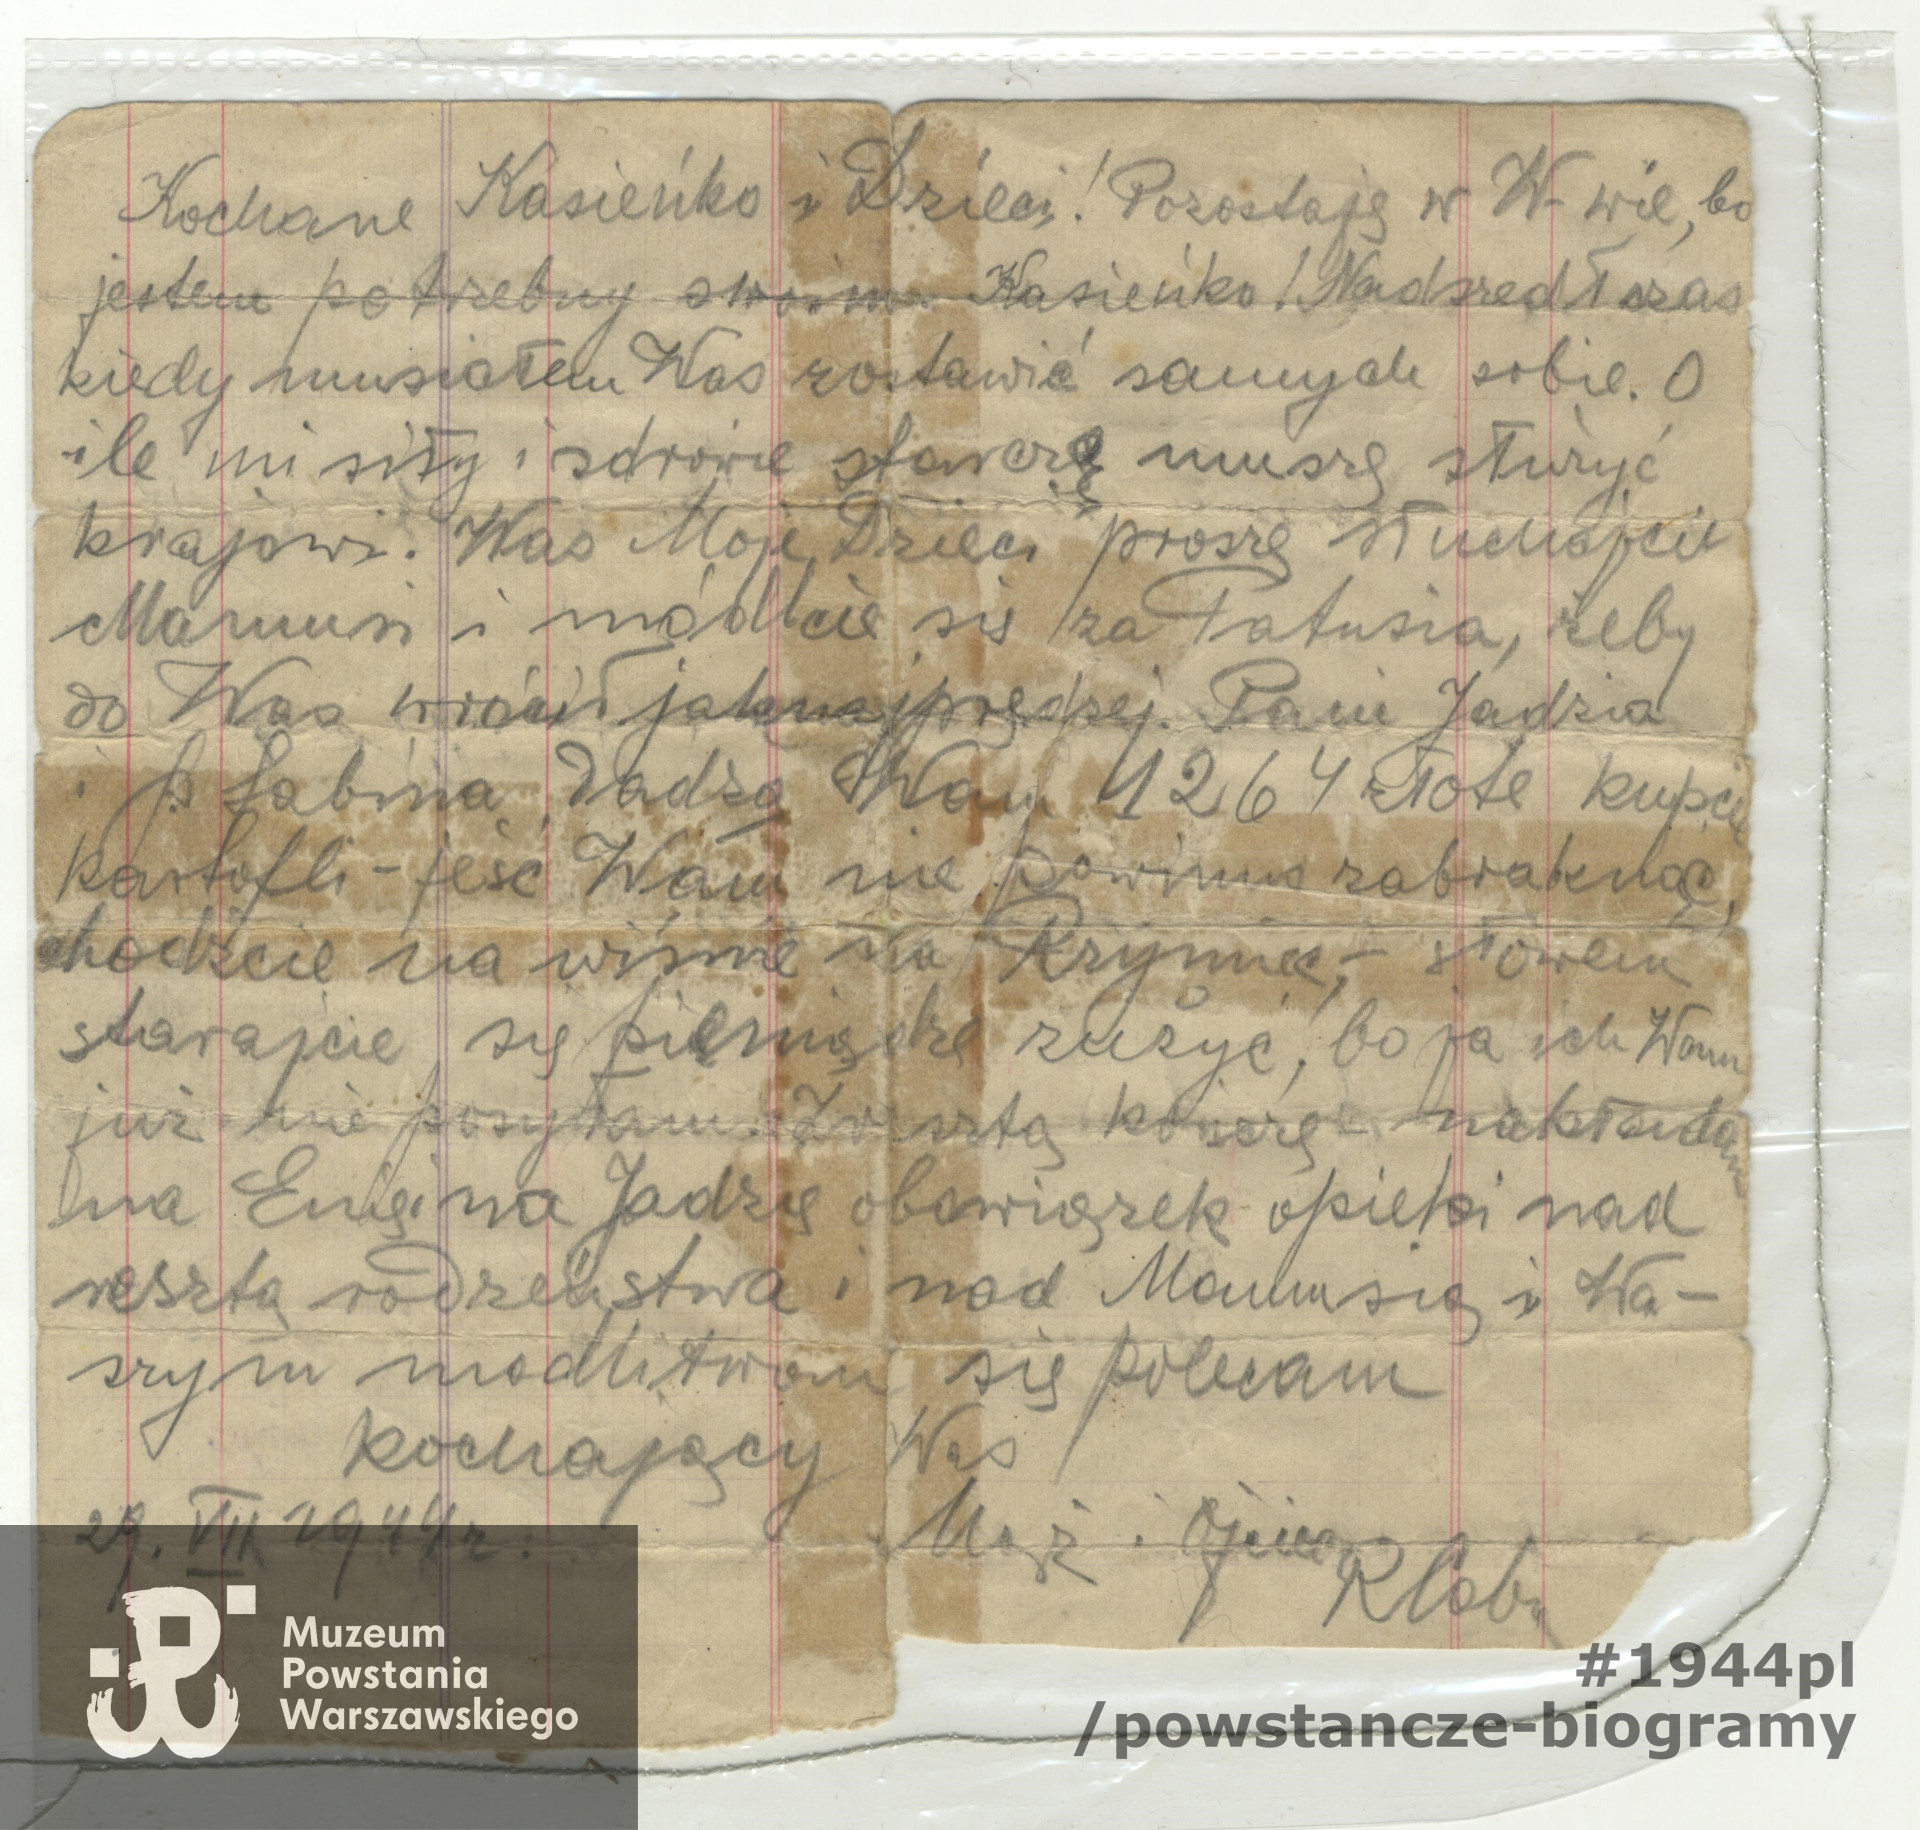 Kochane Kasieńko i Dzieci! Pozostaję w W-wie, bo
jestem potrzebny swoim. Kasieńko! Nadszedł czas
kiedy musiałem Was zostawić samych sobie. O
ile mi siły i zdrowie starczą muszę służyć
krajowi. Was Moje Dzieci proszę słuchajcie
Mamusi i módlcie się za Tatusia, żeby
do Was wrócił jaknajprędzej. Pani Jadzia
i p. Sabina dadzą Wam 1264 złote kupcie
kartofli - jeść Wam nie powinno zabraknąć,
chodźcie na wiśnie na - słowem
starajcie się pieniądze zużyć, bo ja ich Wam
już nie posyłam. Zresztą kończę - nakładam
na Enię i na Jadzię obowiązek opieki nad
resztą rodzeństwa i nad Mamusią i Wa-
szym modlitwom się polecam
kochający Was
29. VII 1944 r. Mąż i Ojciec
Muzeum
Powstania
Warszawskiego
#1944pl
/powstancze-biogramy